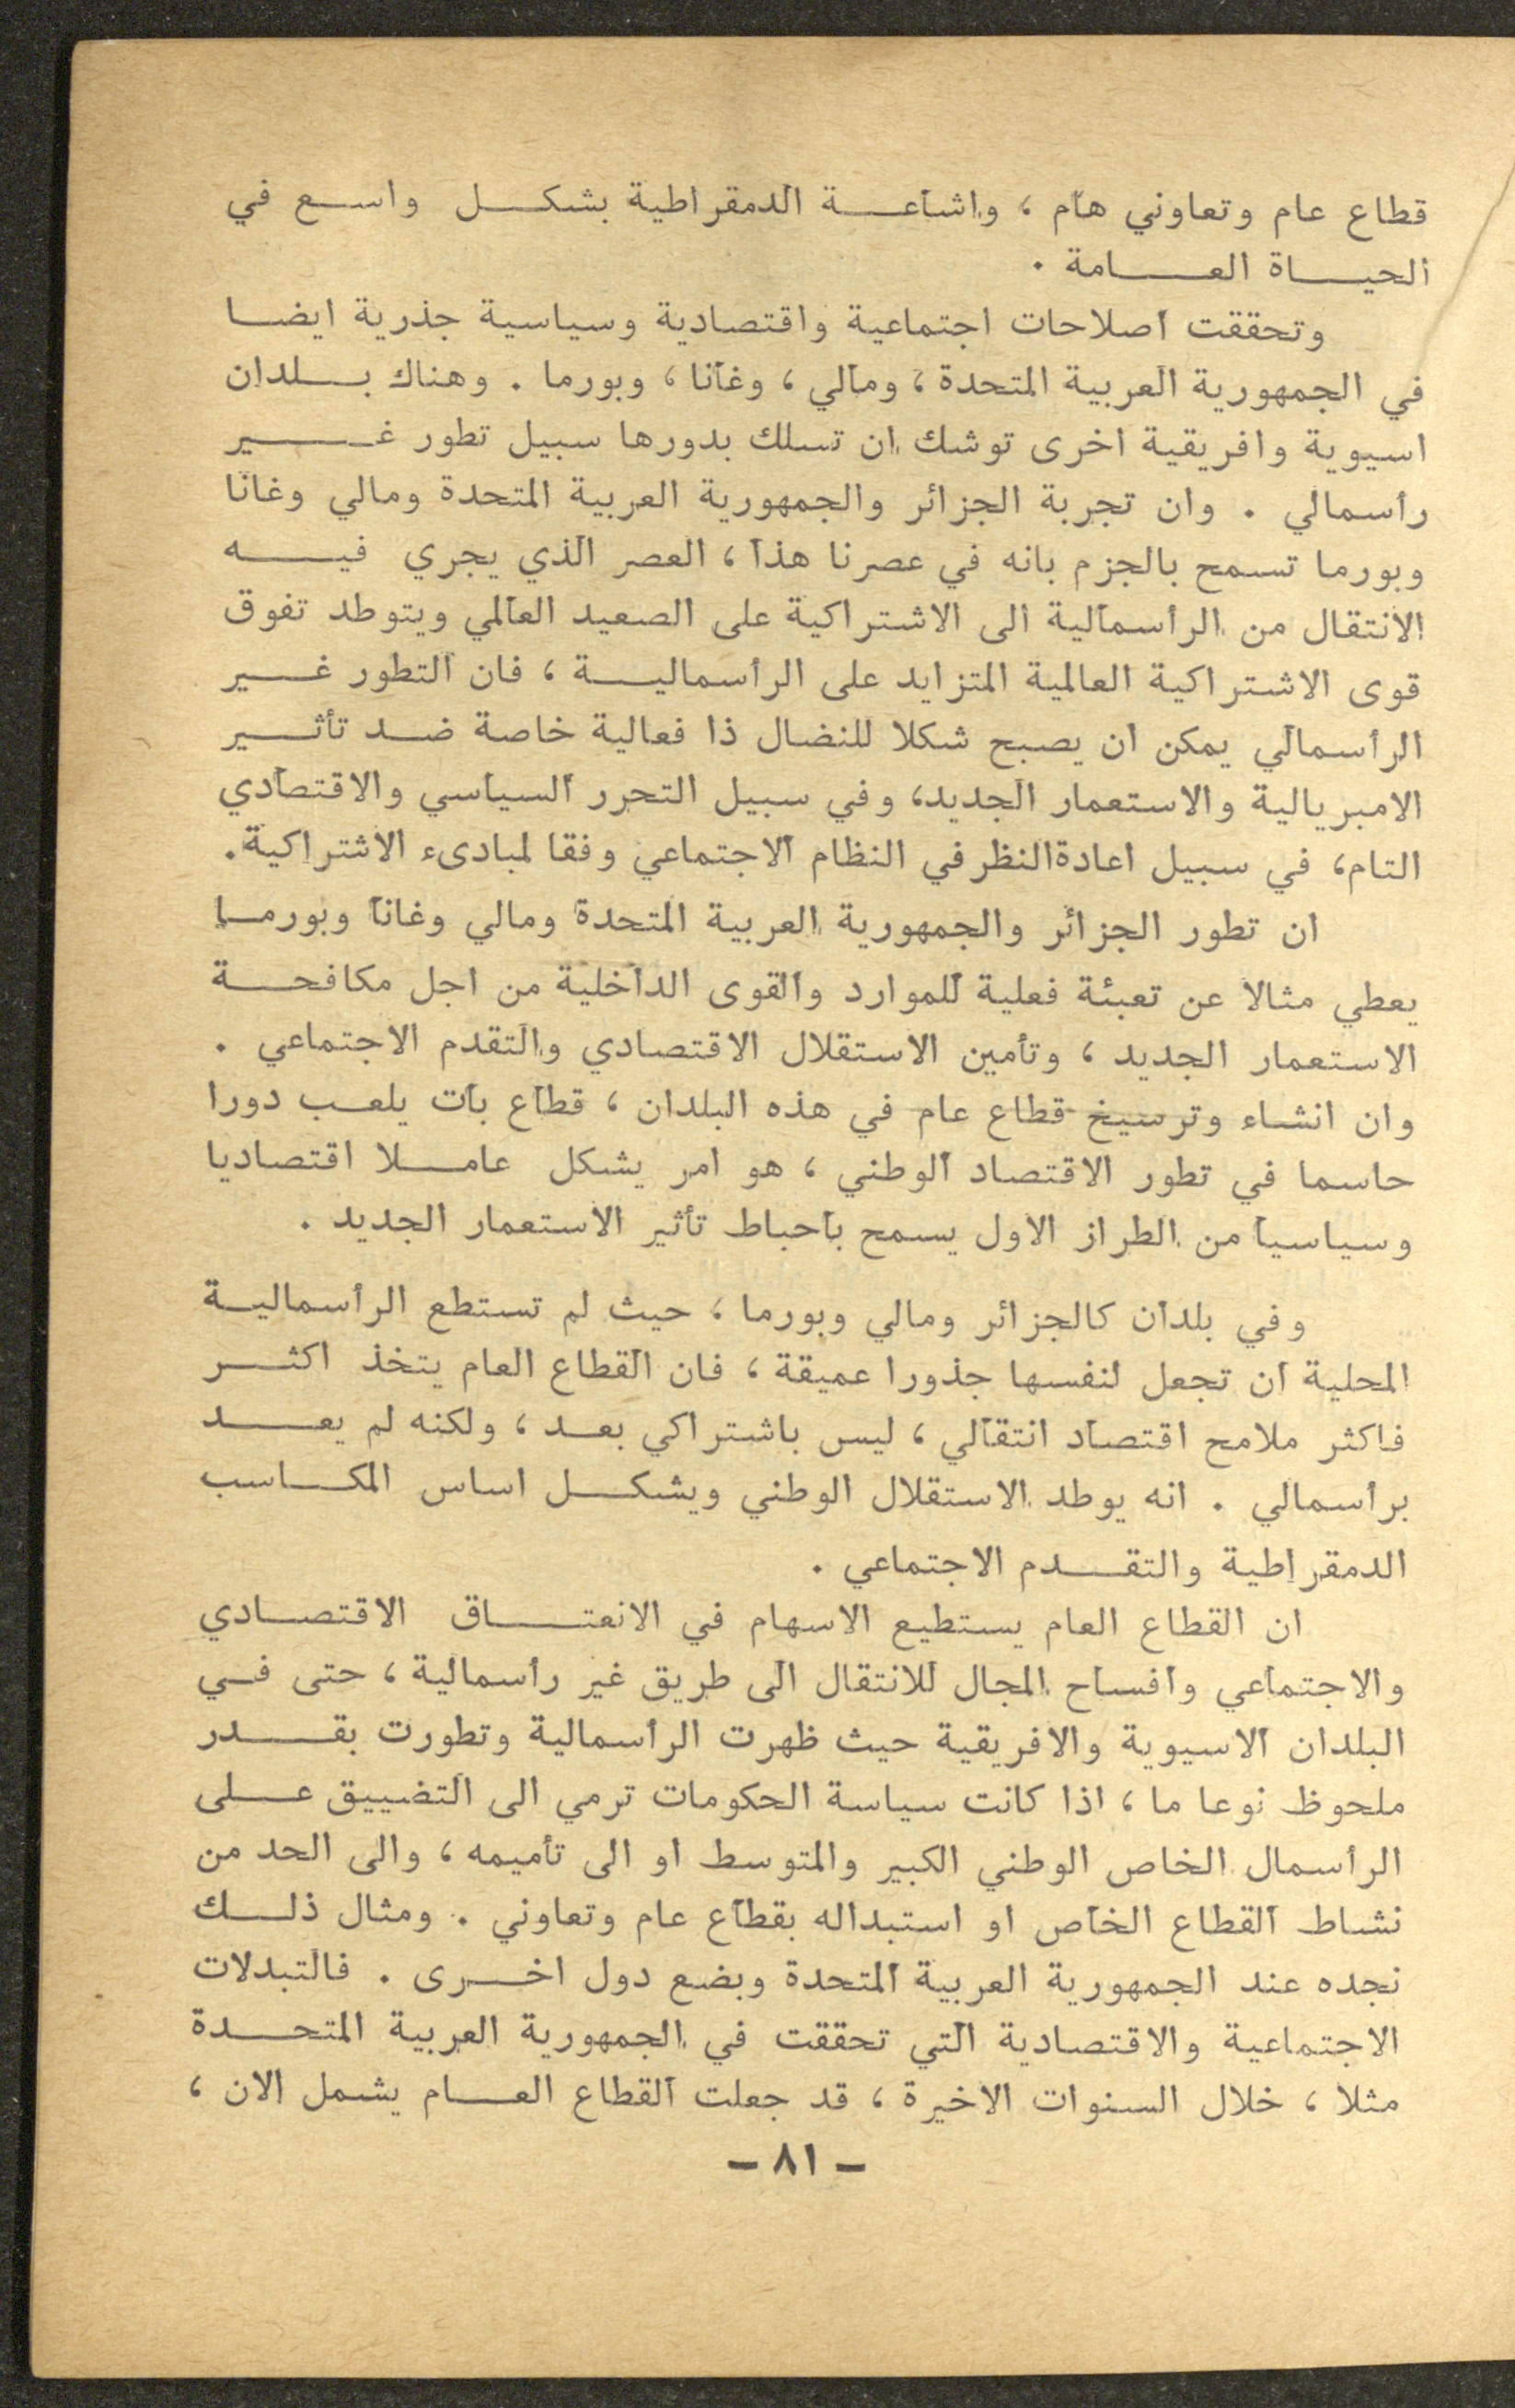 قطاع عام وتعاوني هام ، واشاعة الدمقراطية بشكل واسع في
الحياة العامة .
وتحققت اصلاحات اجتماعية واقتصادية وسياسية جذرية ايضا
في الجمهورية العربية المتحدة ، ومالي ، وغانا ، وبورما . وهناك بلدان
اسيوية وافريقية اخرى توشك ان تسلك بدورها سبيل تطور غير
رأسمالي . وان تجربة الجزائر والجمهورية العربية المتحدة ومالي وغانا
وبورما تسمح بالجزم بانه في عصرنا هذا ، العصر الذي يجري فيه
الانتقال من الرأسمالية الى الاشتراكية على الصعيد العالمي ويتوطد تفوق
قوى الاشتراكية العالمية المتزايد على الرأسمالية ، فان التطور غير
الرأسمالي يمكن ان يصبح شكلا للنضال ذا فعالية خاصة ضد تأثير
الامبريالية والاستعمار الجديد، وفي سبيل التحرر السياسي والاقتصادي
التام، في سبيل اعادة النظر في النظام الاجتماعي وفقا لمبادىء الاشتراكية.
ان تطور الجزائر والجمهورية العربية المتحدة ومالي وغانا وبورما
يعطي مثالا عن تعبئة فعلية للموارد والقوى الداخلية من اجل مكافحة
الاستعمار الجديد ، وتأمين الاستقلال الاقتصادي والتقدم الاجتماعي .
وان انشاء وترسيخ قطاع عام في هذه البلدان ، قطاع بات يلعب دورا
حاسما في تطور الاقتصاد الوطني ، هو امر يشكل عاملا اقتصاديا
وسياسيا من الطراز الاول يسمح باحباط تأثير الاستعمار الجديد .
وفي بلدان كالجزائر ومالي وبورما ، حيث لم تستطع الرأسمالية
المحلية ان تجعل لنفسها جذورا عميقة ، فان القطاع العام يتخذ اكثر
فاكثر ملامح اقتصاد انتقالي ، ليس باشتراكي بعد ، ولكنه لم يعد
برأسمالي . انه يوطد الاستقلال الوطني ويشكل اساس المكاسب
الدمقراطية والتقدم الاجتماعي .
ان القطاع العام يستطيع الاسهام في الانعتاق الاقتصادي
والاجتماعي وافساح المجال للانتقال الى طريق غير رأسمالية ، حتى في
البلدان الاسيوية والافريقية حيث ظهرت الرأسمالية وتطورت بقدر
ملحوظ نوعا ما ، اذا كانت سياسة الحكومات ترمي الى التضييق على
الرأسمال الخاص الوطني الكبير والمتوسط او الى تأميمه ، والى الحد من
نشاط القطاع الخاص او استبداله بقطاع عام وتعاوني . ومثال ذلك
نجده عند الجمهورية العربية المتحدة وبضع دول اخرى . فالتبدلات
الاجتماعية والاقتصادية التي تحققت في الجمهورية العربية المتحدة
مثلا ، خلال السنوات الاخيرة ، قد جعلت القطاع العام يشمل الان ،
– ٨١ –